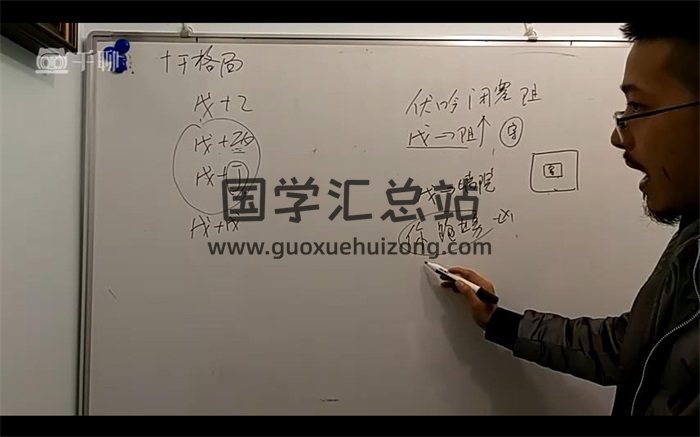 千聊
十干格局
戊+乙
戊+丙
戊+丁
戊+戊
伏吟闭塞阻
戊→阻↑ 守
国学汇总站
www.guoxuehuizong.com